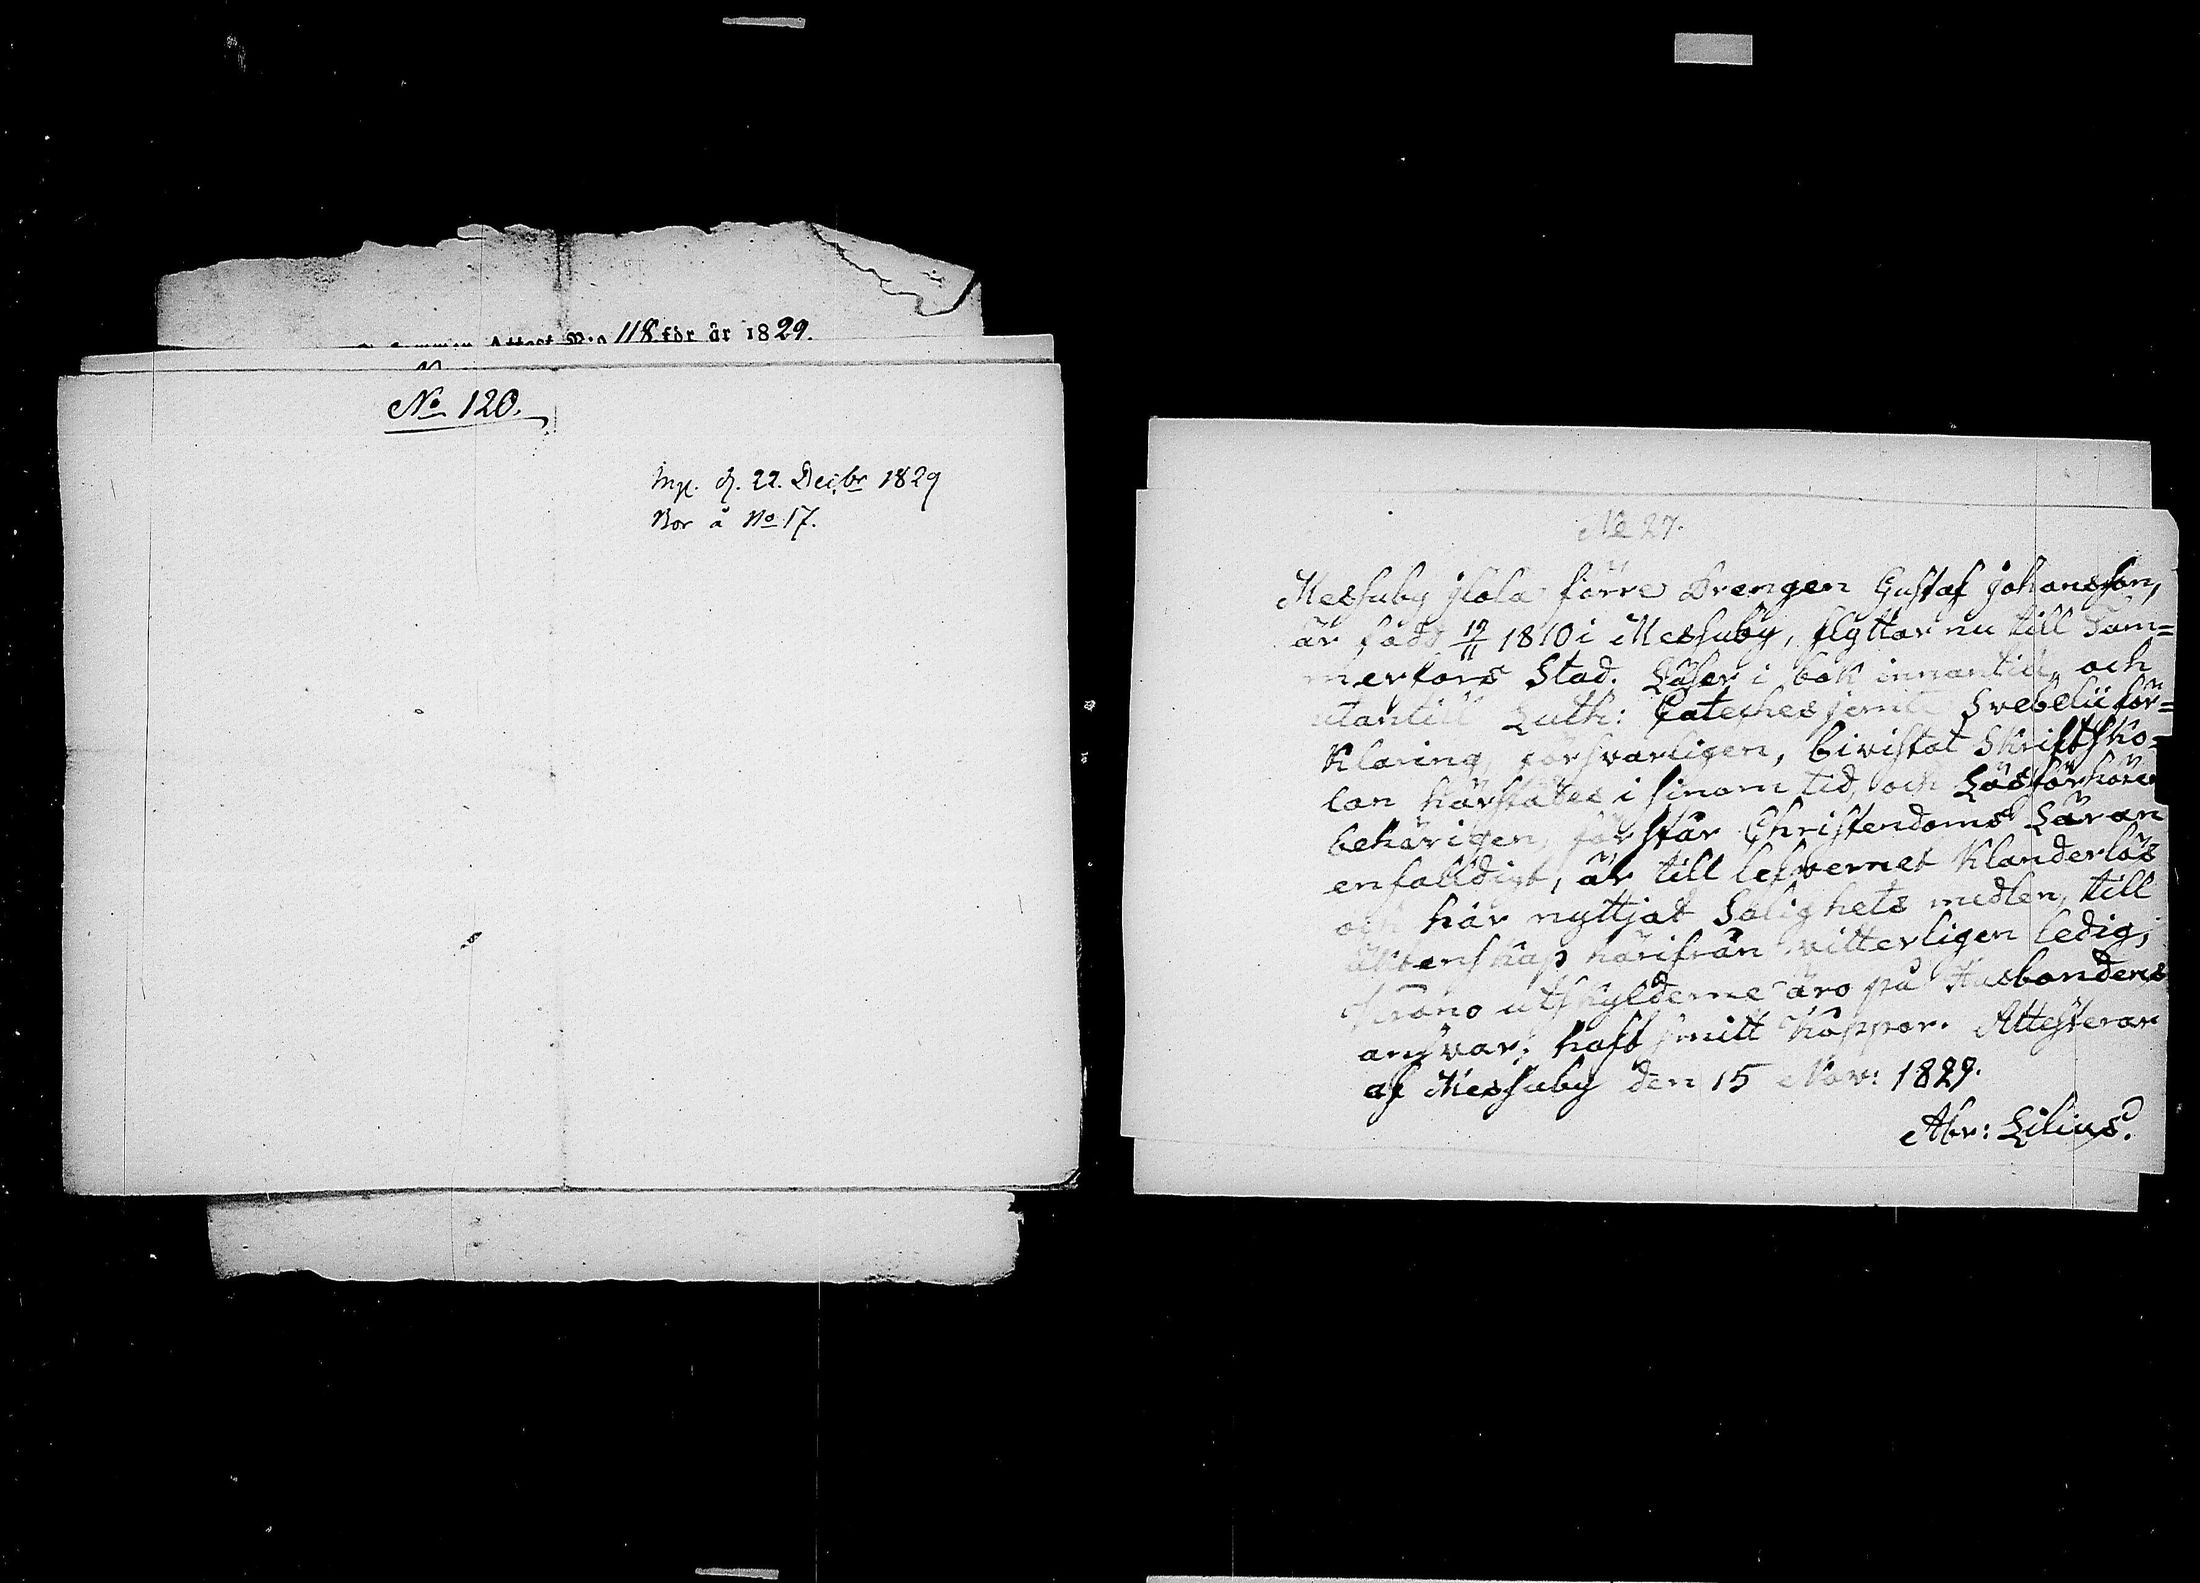 Attest N:o 118 för år 1829.
No 120.
Ing. d. 22. Decbr 1829
Bor å No 17.
No 27.
Messuby förre Drengen Gustaf Johansson,
är född 19/11 1810 i Messuby, flyttar nu till Tam=
merfors Stad. Läser i bok innantill, och
utantill Luth: Cateches jemte Svebelii för=
klaring, försvarligen, bivistat Skriftsko=
lan härstädes i sinom tid, och Läsförhören
behörigen, förstår Christendoms Läran
enfalldigt, är till lefvernet klanderlös
och här nyttjat Salighets medlen, till
äktenskap härifrån vitterligen ledig,
Krono utskylderne äro på Husbondens
ansvar; haft mitt Koppor. Attesterar
af Messuby den 15 Nov: 1829.
Abr: Lilius.